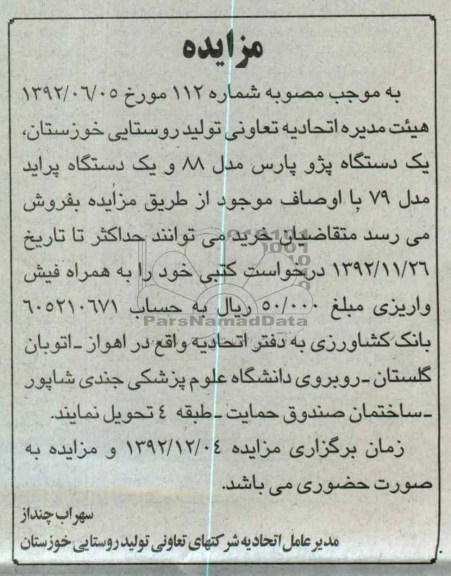 مزایده
به موجب مصوبه شماره ۱۱۲ مورخ ۱۳۹۲/۰۶/۰۵
هیئت مدیره اتحادیه تعاونی تولید روستایی خوزستان،
یک دستگاه پژو پارس مدل ۸۸ و یک دستگاه پراید
مدل ۷۹ با اوصاف موجود از طریق مزایده بفروش
می رسد متقاضیان خرید می توانند حداکثر تا تاریخ
۱۳۹۲/۱۱/۲۶ درخواست کتبی خود را به همراه فیش
واریزی مبلغ ۵۰/۰۰۰ ریال به حساب ۶۰۵۲۱۰۶۷۱
ParsNamadData
بانک کشاورزی به دفتر اتحادیه واقع در اهواز ـ اتوبان
گلستان ـ روبروی دانشگاه علوم پزشکی جندی شاپور
ـ ساختمان صندوق حمایت ـ طبقه ٤ تحویل نمایند.
زمان برگزاری مزایده ۱۳۹۲/۱۲/۰٤ و مزایده به
صورت حضوری می باشد.
سهراب چنداز
مدیر عامل اتحادیه شرکتهای تعاونی تولید روستایی خوزستان